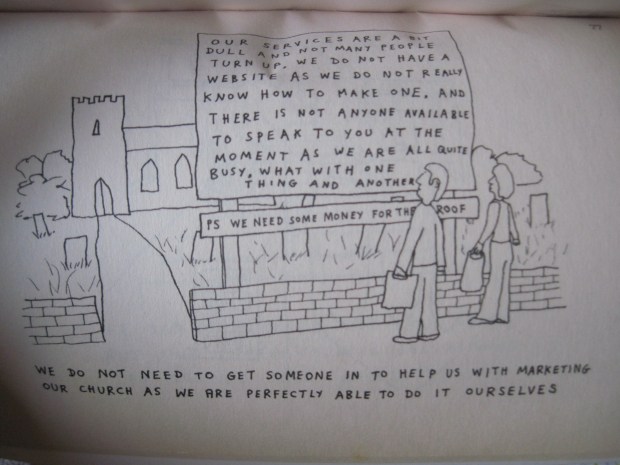 OUR SERVICES ARE A BIT
DULL AND NOT MANY PEOPLE
TURN UP. WE DO NOT HAVE A
WEBSITE AS WE DO NOT REALLY
KNOW HOW TO MAKE ONE, AND
THERE IS NOT ANYONE AVAILABLE
TO SPEAK TO YOU AT THE
MOMENT AS WE ARE ALL QUITE
BUSY, WHAT WITH ONE
THING AND ANOTHER
PS WE NEED SOME MONEY FOR THE ROOF
WE DO NOT NEED TO GET SOMEONE IN TO HELP US WITH MARKETING
OUR CHURCH AS WE ARE PERFECTLY ABLE TO DO IT OURSELVES